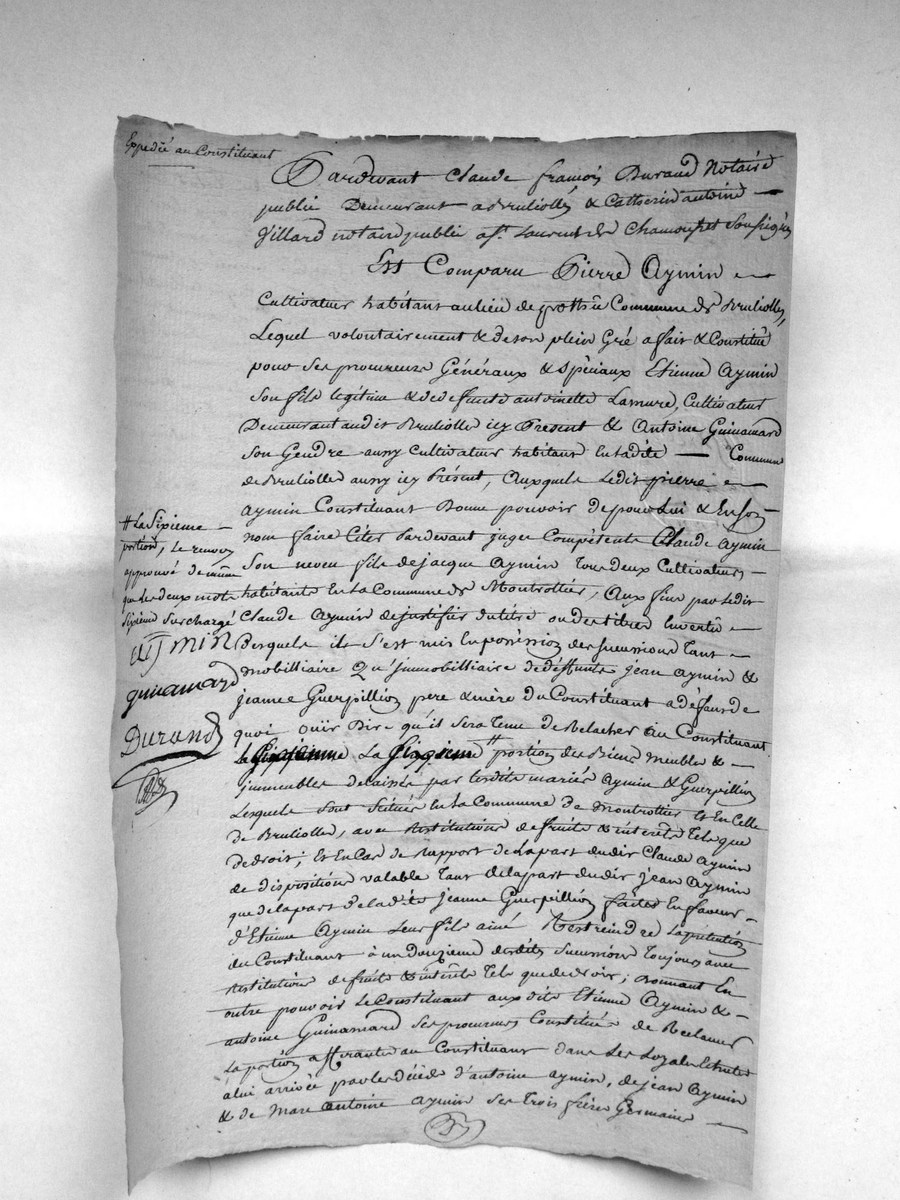 Expedié au Constituant
Pardevant Claude françois Durand Notaire
public Demeurant a Brulioles & Catherin antoine
Villard notaire public a St. Laurent de Chamousset soussignés
Est Comparu Pierre Aymin
Cultivateur habitant au lieu de Commune de Brulioles,
Lequel volontairement & de son plein Gré a fait & Constitué
pour ses procureurs Généraux & spéciaux Etienne Aymin
son fils légitime & de deffunte antoinette Lamure, Cultivateur
Demeurant audit Bruliolle icy Présent & Antoine Guinamard
son Gendre aussy Cultivateur habitant en ladite Commune
de Bruliolle aussy icy Présent, auxquels ledit pierre
aymin Constituant Donne pouvoir de pour Lui & en son
nom faire Citer Pardevant juges Compétents Claude aymin
son neveu fils de jacque aymin tous deux Cultivateurs
habitants en la Commune de Montrottier, aux fins par ledit
Claude Aymin de justifier du titre ou des titres en vertu
Desquels il s'est mis en possession des successions tant
mobilliaire qu'immobilliaire de déffunts jean aymin &
jeanne Guerpillion père & mère du Constituant a défaut de
quoi ouïr Dire qu'il sera tenu de Relacher au Constituant
la Sixieme # portion des Biens meubles &
immeubles delaissés par lesdits mariés Aymin & Guerpillion
Lesquels sont scitués en la Commune de Montrottier et en Celle
de Brulioles, avec Restitutions de fruits & intérêts Tels que
de droit; et en Cas de Rapport de la part dudit Claude aymin
de dispositions valable tant de la part dudit jean Aymin
que de la part de ladite jeanne Guerpillion faites en faveur
d'Etienne Aymin leur fils ainé Restreindre la pétition
du Constituant à un douzieme desdites successions Toujours avec
Restitutions de fruits & intérêts Tels que de droit; Donnant En
outre pouvoir le Constituant auxdits Etienne Aymin &
antoine Guinamard ses procureurs Constitués de Réclamer
La portion afférante au Constituant dans les
à lui arrivée par le décéds d'antoine aymin, de jean Aymin
& de Marc Antoine Aymin ses trois frères Germains
# La Sixieme
portion, le renvoy
approuvé de même
que les deux mots
sixieme surchargé
aymin
guinamard
Durand